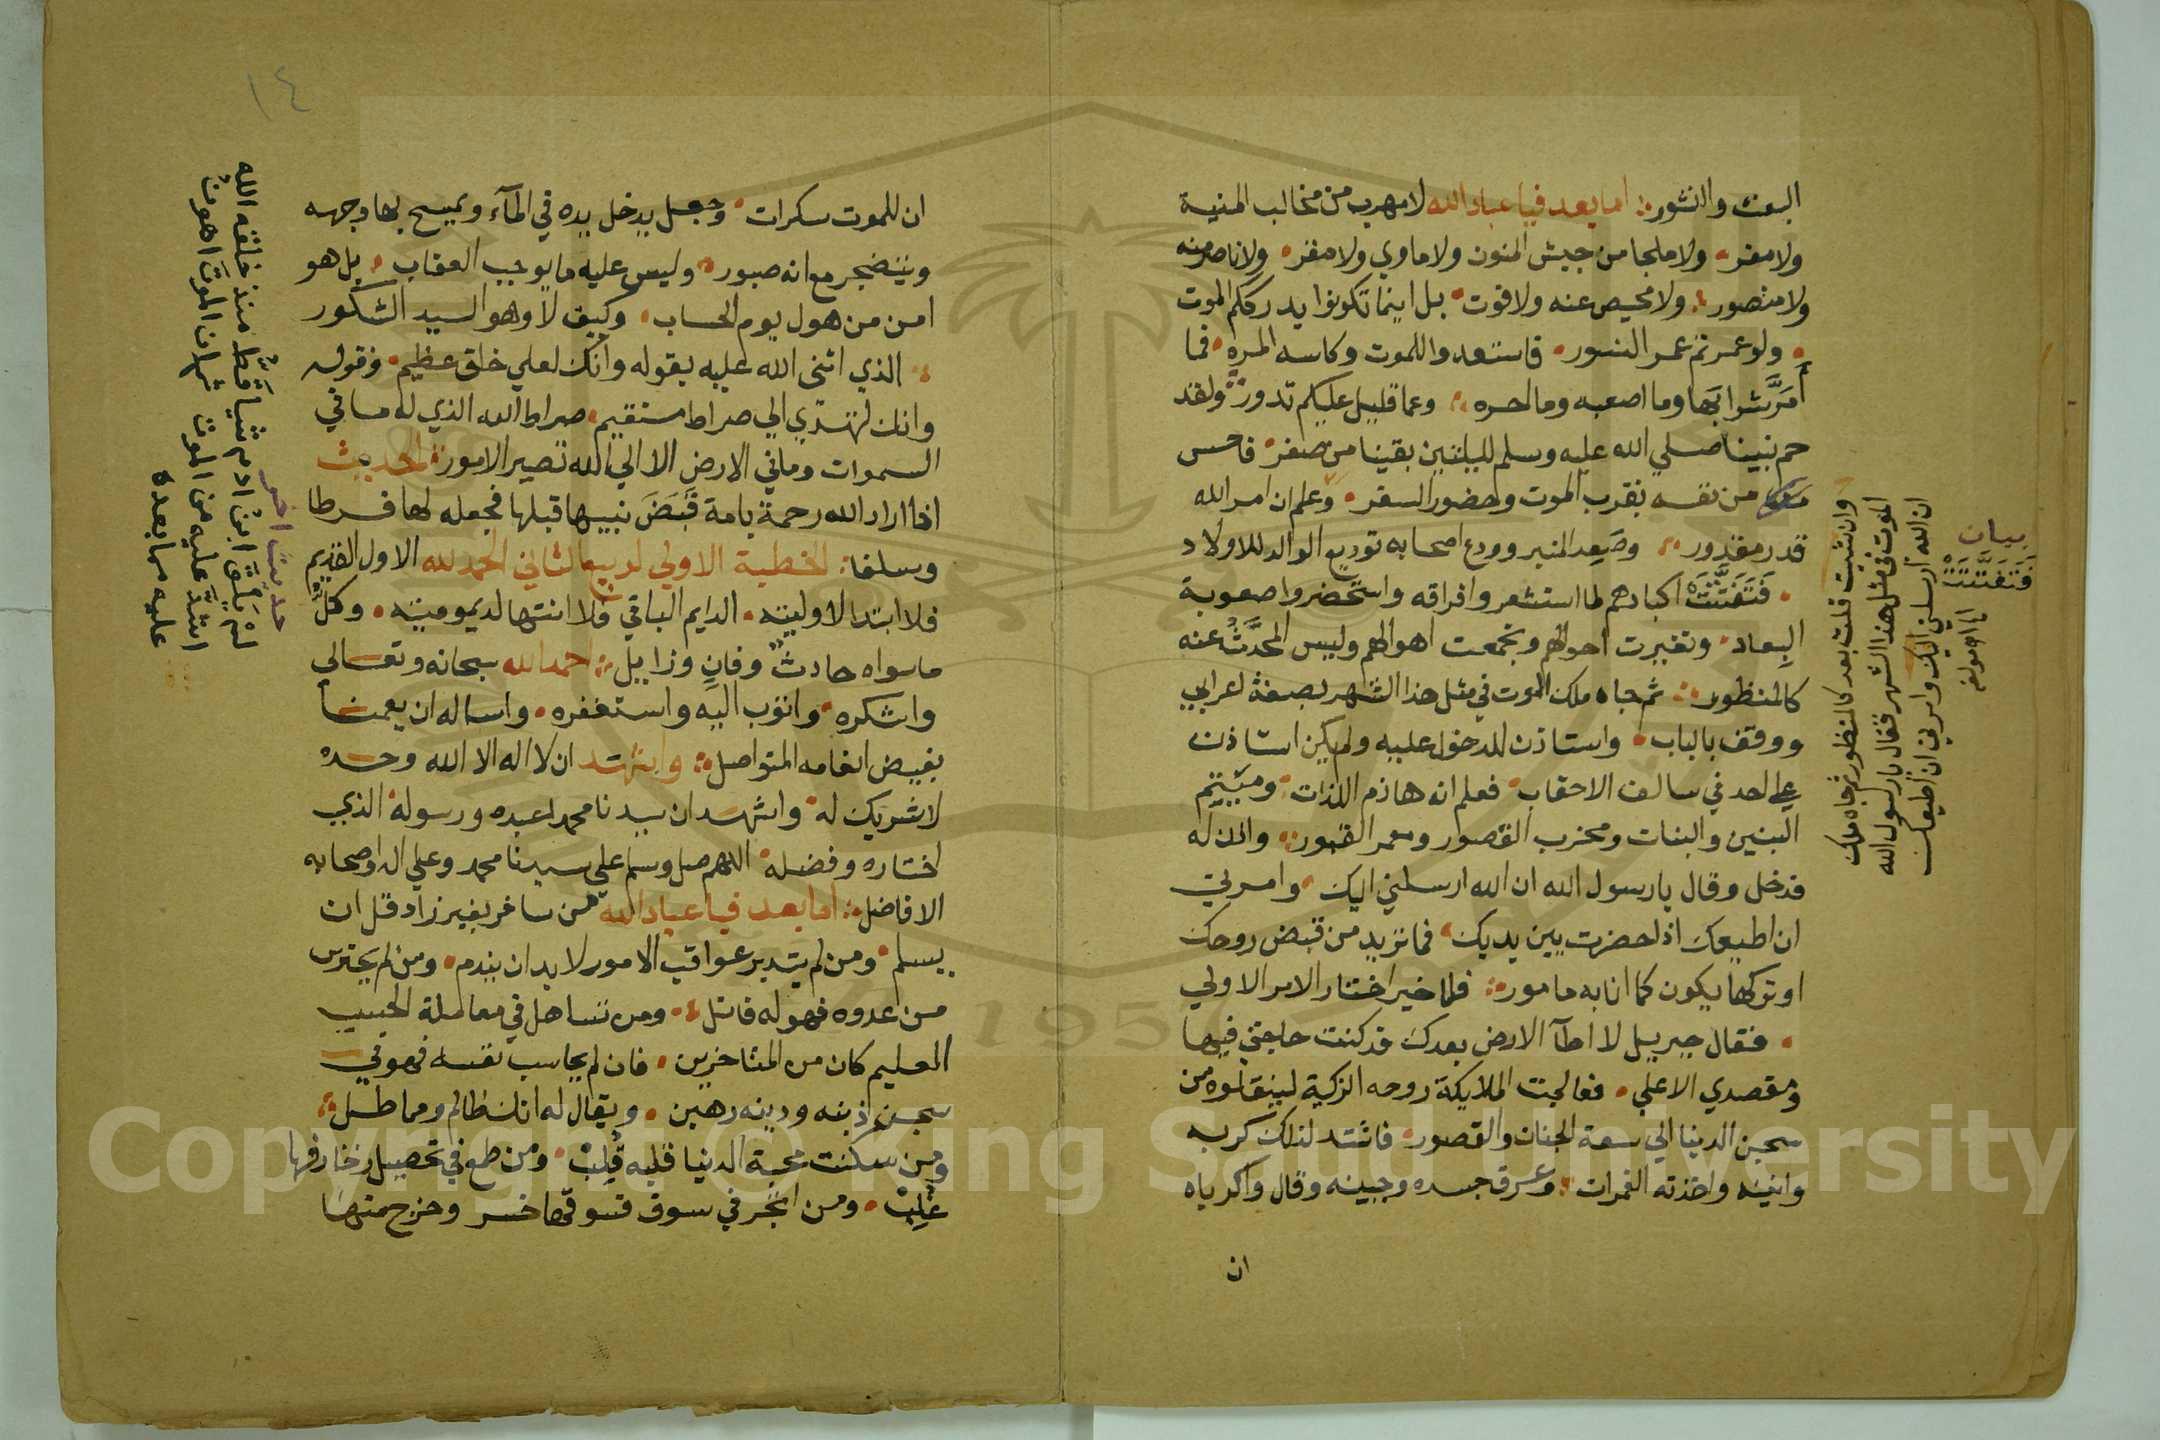 البعث والنشور اما بعد فيا عباد الله لا مهرب من مخالب المنية
ولا مفر ولا ملجا من جيش المنون ولا ماوي ولا مفر ولا ناصر منه
ولا منصور ولا محيص عنه ولا فوت بل اينما تكونوا يدرككم الموت
ولو عمرتم عمر النسور فاستعدوا للموت وكاسه المره فما
أمَرَّ شرابها وما اصعبه وما احره وعما قليل عليكم تدور ولقد
حم نبينا صلي الله عليه وسلم لليلتين بقينا من صفر فاحس
من نفسه بقرب الموت وحضور السفر وعلم ان امر الله
قدر مقدور وصَعِد المنبر وودع اصحابه توديع الوالد للاولاد
فَتَفَتَّتَتْ اكبادهم لما استشعروا فراقه واستحضروا صعوبة
البعاد وتغيرت احوالهم وتجمعت اهوالهم وليس المحَدَّثُ عنه
كالمنظور ثم جاه ملك الموت في مثل هذا الشهر بصفة اعرابي
ووقف بالباب واستاذن للدخول عليه ولم يكن استاذن
علي احد في سالف الاحقاب فعلم انه هاذم اللذات وميتم
البنين والبنات ومخرب القصور ومعمر القبور واذن له
فدخل وقال يارسول الله ان الله ارسلني اليك وامرني
ان اطيعك اذا حضرت بين يديك فما تريد من قبض روحك
او تركها يكون كما انا به مامور فلما خير اختار الامر الاولي
فقال جبريل لا اطآ الارض بعدك قد كنت حاجتي فيها
ومقصدي الاعلي فعالجت الملايكة روحه الزكية لينقلوه من
سجن الدنيا الي سعة الجنان والقصور فاشتد لذلك كربه
وانينه واخذته الغمرات وعرق جسده وجبينه وقال واكرباه
ان
بيان
فَتَفَتَّتَتْ
وان شيت قلت بعد كالمنظور ثم جاه ملك
الموت في مثل هذا الشهر فقال يارسول الله
ان الله ارسلني اليك وامرني ان اطيعك
١٤
ان للموت سكرات وجعل يدخل يده في المآء ويمسح بها وجهه
ويتضجر مع انه صبور وليس عليه ما يوجب العقاب بل هو
امن من هول يوم الحساب وكيف لا وهو السيد الشكور
الذي اثني الله عليه بقوله وانك لعلي خلق عظيم وقوله
وانك لتهدي الي صراط مستقيم صراط الله الذي له ما في
السموات وما في الارض الا الي الله تصير الامور الحديث
اذا اراد الله رحمة بامة قَبَضَ نبيها قبلها فجعله لها فرطا
وسلفا الخطبة الاولي لربيع الثاني الحمد لله الاول القديم
فلا ابتدا لاوليته الدايم الباقي فلا انتها لديموميته وكل
ماسواه حادث وفانٍ وزايل احمد الله سبحانه وتعالي
واشكره واتوب اليه واستغفره واساله ان يعمنا
بفيض انعامه المتواصل واشهد ان لا اله الا الله وحده
لا شريك له واشهد ان سيدنا محمدا عبده ورسوله الذي
اختاره وفضله اللهم صل وسلم علي سيدنا محمد وعلي اله واصحابه
الافاضل اما بعد فيا عباد الله من سافر بغير زاد قل ان
يسلم ومن لم يتدبر عواقب الامور لابد ان يندم ومن لم يحترس
من عدوه فهو له قاتل ومن تساهل في معاملة الحبيب
العليم كان من المتاخرين فان لم يحاسب نفسه فهو في
سجن ذنبه ودينه رهين ويقال له انك ظالم ومماطل
ومن سكنت محبة الدنيا قلبه قُلِبَ ومن طمع في تحصيل زخارفها
غُلِبَ ومن اتجر في سوق فسوقها خسر وخرج منها
حديث اخر
لمْ يَلْقَ ابن ادم شيأ قطُّ منذ خلقه الله
اشدَّ عليه من الموت ثم ان الموتَ اهونُ
عليه مما بعده